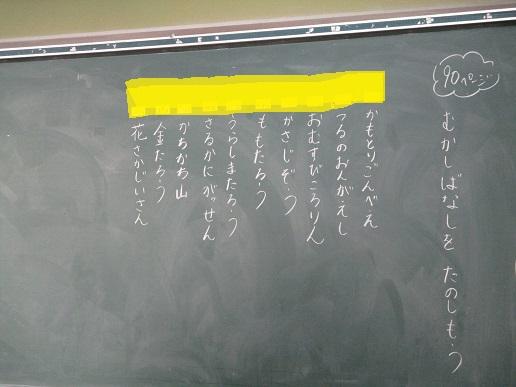 90ページ
むかしばなしを たのしもう
かもとりごんべえ
つるのおんがえし
おむすびころりん
かさじぞう
ももたろう
うらしまたろう
さるかにがっせん
かちかち山
金たろう
花さかじいさん